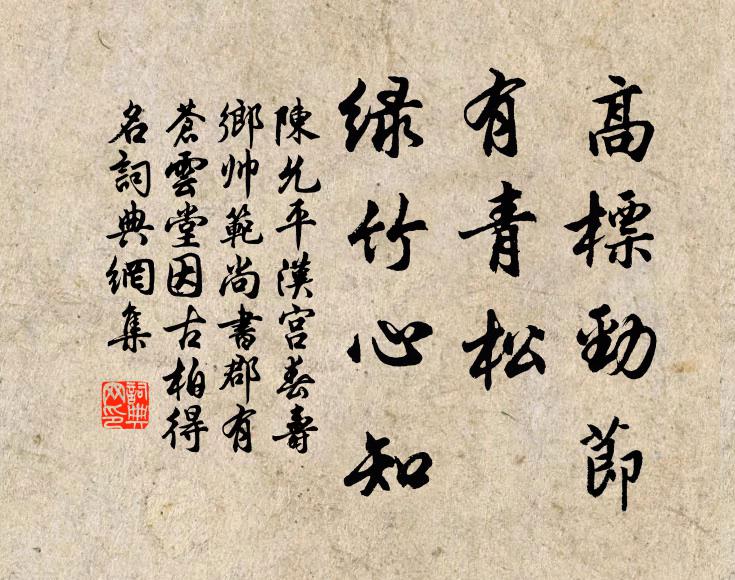 高標勁節
有青松
緑竹心知
陳允平漢宮春壽
鄉帅範尚書郡有
蒼雲堂因古柏得
名詞典網集
詞典
网印